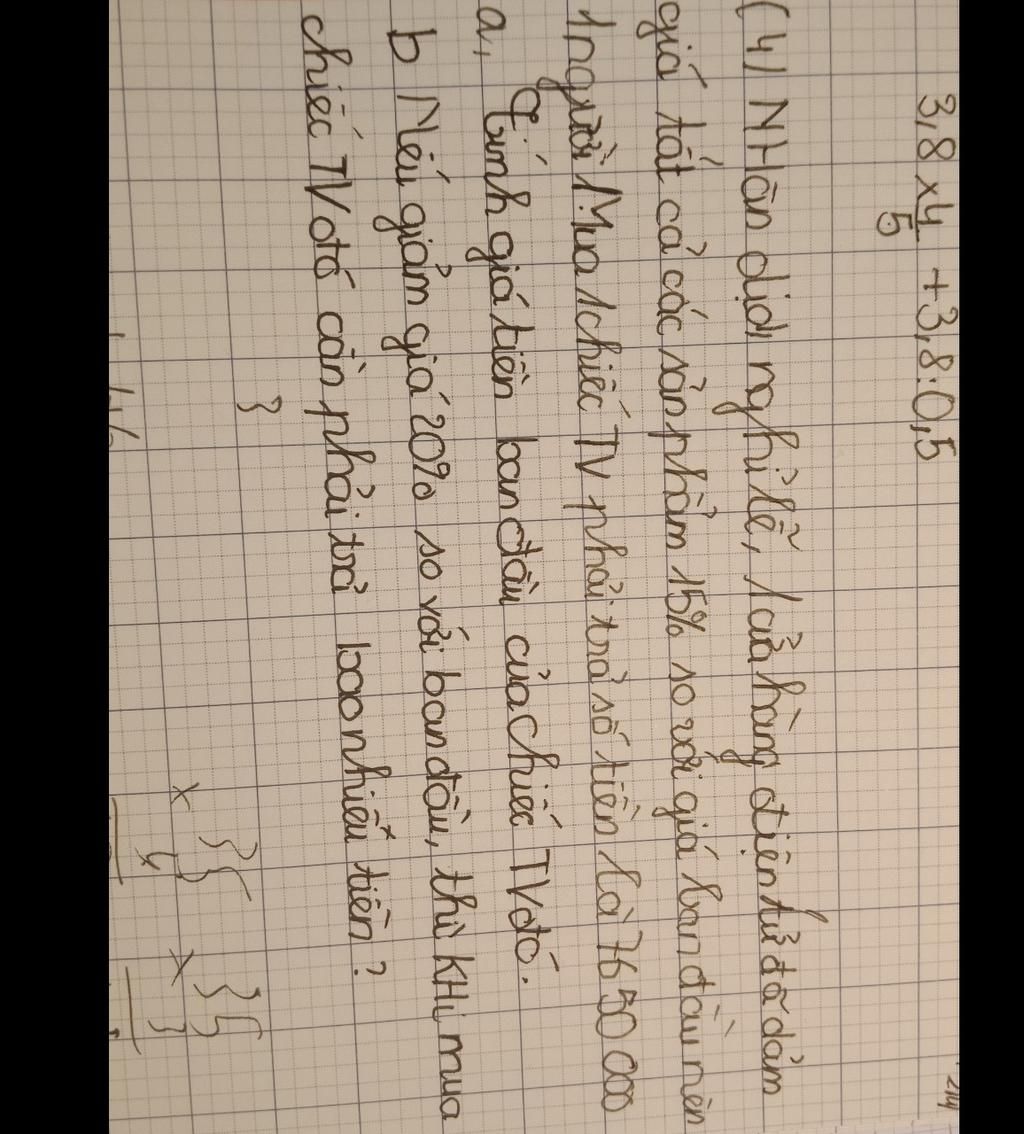 3,8 × 4/5 + 3,8 : 0,5
(4) NHân dịdị nghỉ lễ, 1 cửa hàng điện tử đã dảm
giá tất cả các sản phẩm 15% so với giá ban đầu nên
1 người Mua 1 chiếc TV phải trả số tiền là 7650 000
a, Tính giá tiền ban đầu của chiếc TV đó.
b Nếu giảm giá 20% so với ban đầu, thì KHi mua
chiếc TV đó cần phải trả bao nhiêu tiền?